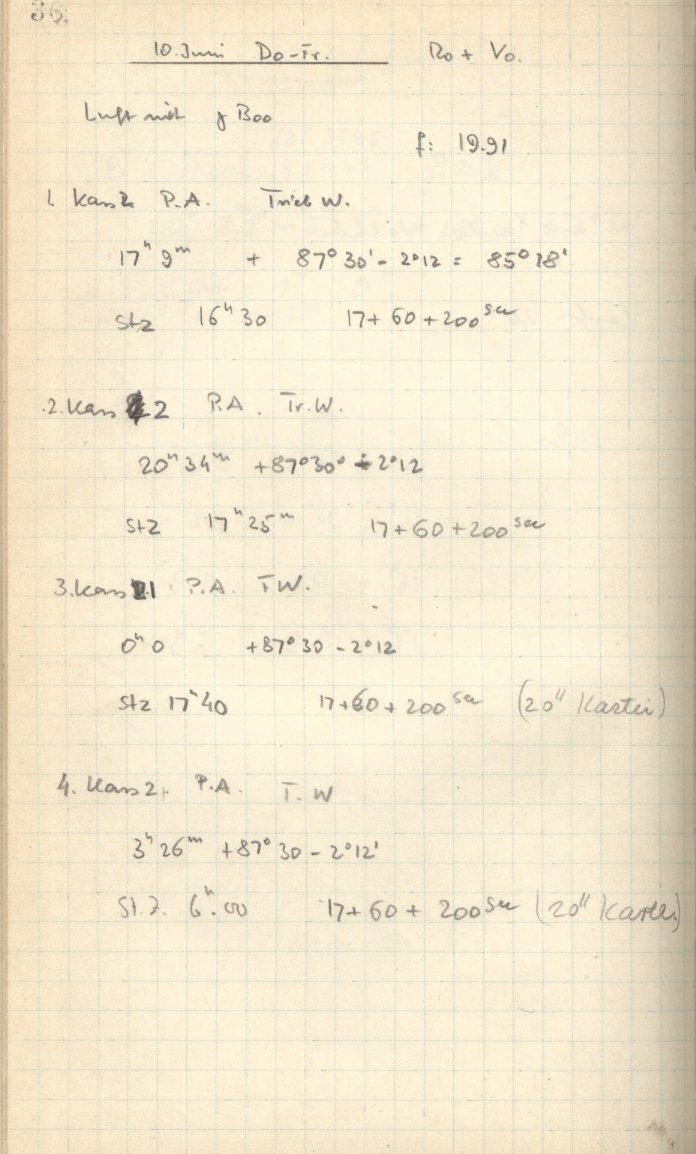 36.
10. Juni Do-Fr. Ro + Vo.
Luft mit γ Boo
f: 19.91
1. Kass 2 P.A. Trieb W.
17ʰ 9ᵐ + 87° 30' - 2°12 = 85° 18'
Stz 16ʰ 30 17 + 60 + 200 sec
2. Kass 2 P.A. Tr. W.
20ʰ 34ᵐ + 87° 30° - 2°12
Stz 17ʰ 25ᵐ 17 + 60 + 200 sec
3. Kass 1 P.A. T.W.
0ʰ 0 + 87° 30 - 2°12
Stz 17ʰ 40 17 + 60 + 200 sec (20ᴵᴵ Kartei)
4. Kass 2, P.A. T. W
3ʰ 26ᵐ + 87° 30 - 2°12'
St. Z. 6ʰ.00 17 + 60 + 200 sec (20ᴵᴵ Kartei)